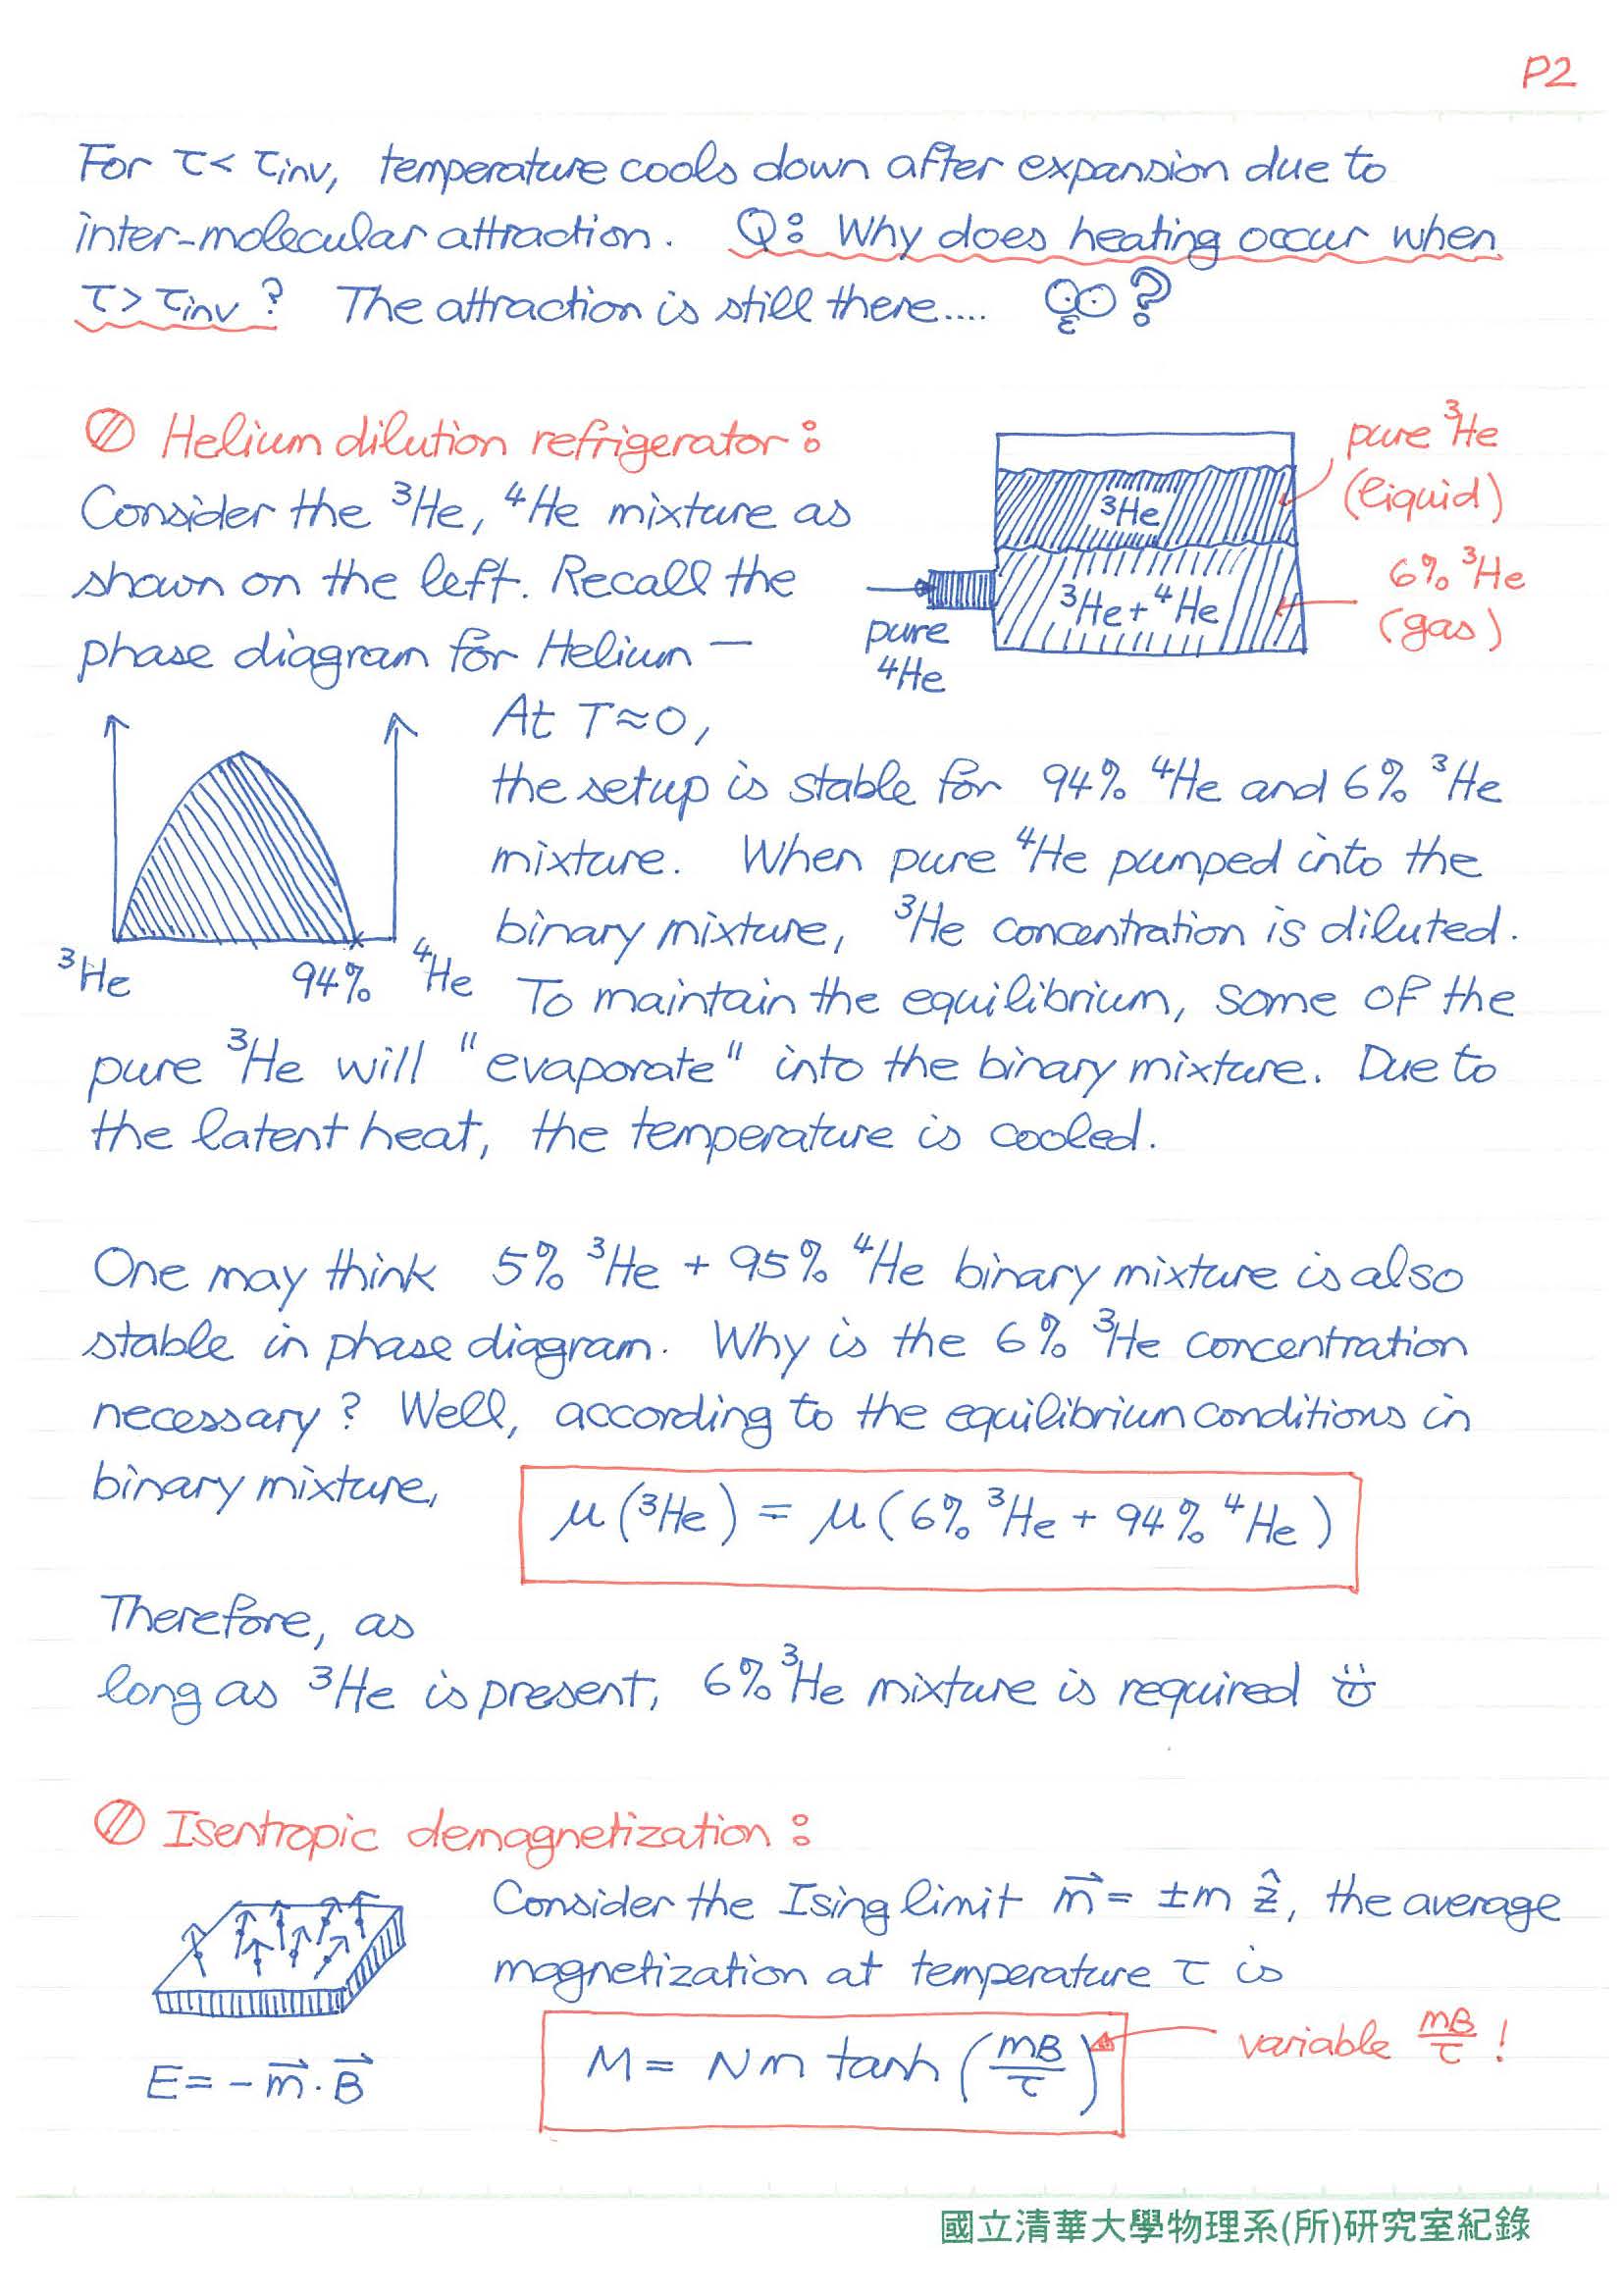 P2
For τ < τinv, temperature cools down after expansion due to
inter-molecular attraction. Q: Why does heating occur when
τ > τinv ? The attraction is still there.... ?
Helium dilution refrigerator:
Consider the ³He, ⁴He mixture as
shown on the left. Recall the
phase diagram for Helium —
pure ³He
(liquid)
³He
6% ³He
(gas)
³He + ⁴He
pure
⁴He
At T≈0,
the setup is stable for 94% ⁴He and 6% ³He
mixture. When pure ⁴He pumped into the
binary mixture, ³He concentration is diluted.
³He 94% ⁴He
To maintain the equilibrium, some of the
pure ³He will "evaporate" into the binary mixture. Due to
the latent heat, the temperature is cooled.
One may think 5% ³He + 95% ⁴He binary mixture is also
stable in phase diagram. Why is the 6% ³He concentration
necessary? Well, according to the equilibrium conditions in
binary mixture,
μ(³He) = μ(6% ³He + 94% ⁴He)
Therefore, as
long as ³He is present, 6% ³He mixture is required
Isentropic demagnetization:
Consider the Ising limit m⃗ = ±m ẑ, the average
magnetization at temperature τ is
E = -m⃗·B⃗
M = Nm tanh (mB/τ)
variable mB/τ !
國立清華大學物理系(所)研究室紀錄